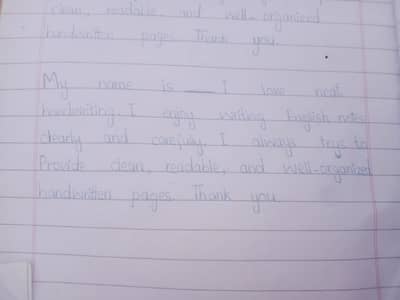 clean, readable, and well-organized
handwritten pages. Thank you.
My name is ___ I love neat
handwriting. I enjoy writing English notes
clearly and carefully. I always trys to
Provide clean, readable, and well-organized
handwritten pages. Thank you